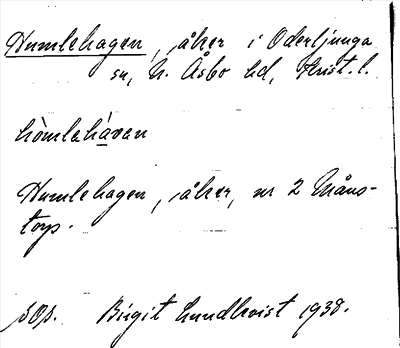 Humlehagen, åker i Oderljunga
sn, N. Åsbo hd, Krist. l.
hòmlahávan
Humlehagen, åker, nr 2 Måns-
torp.
sOp. Birgit Lundkvist 1938.